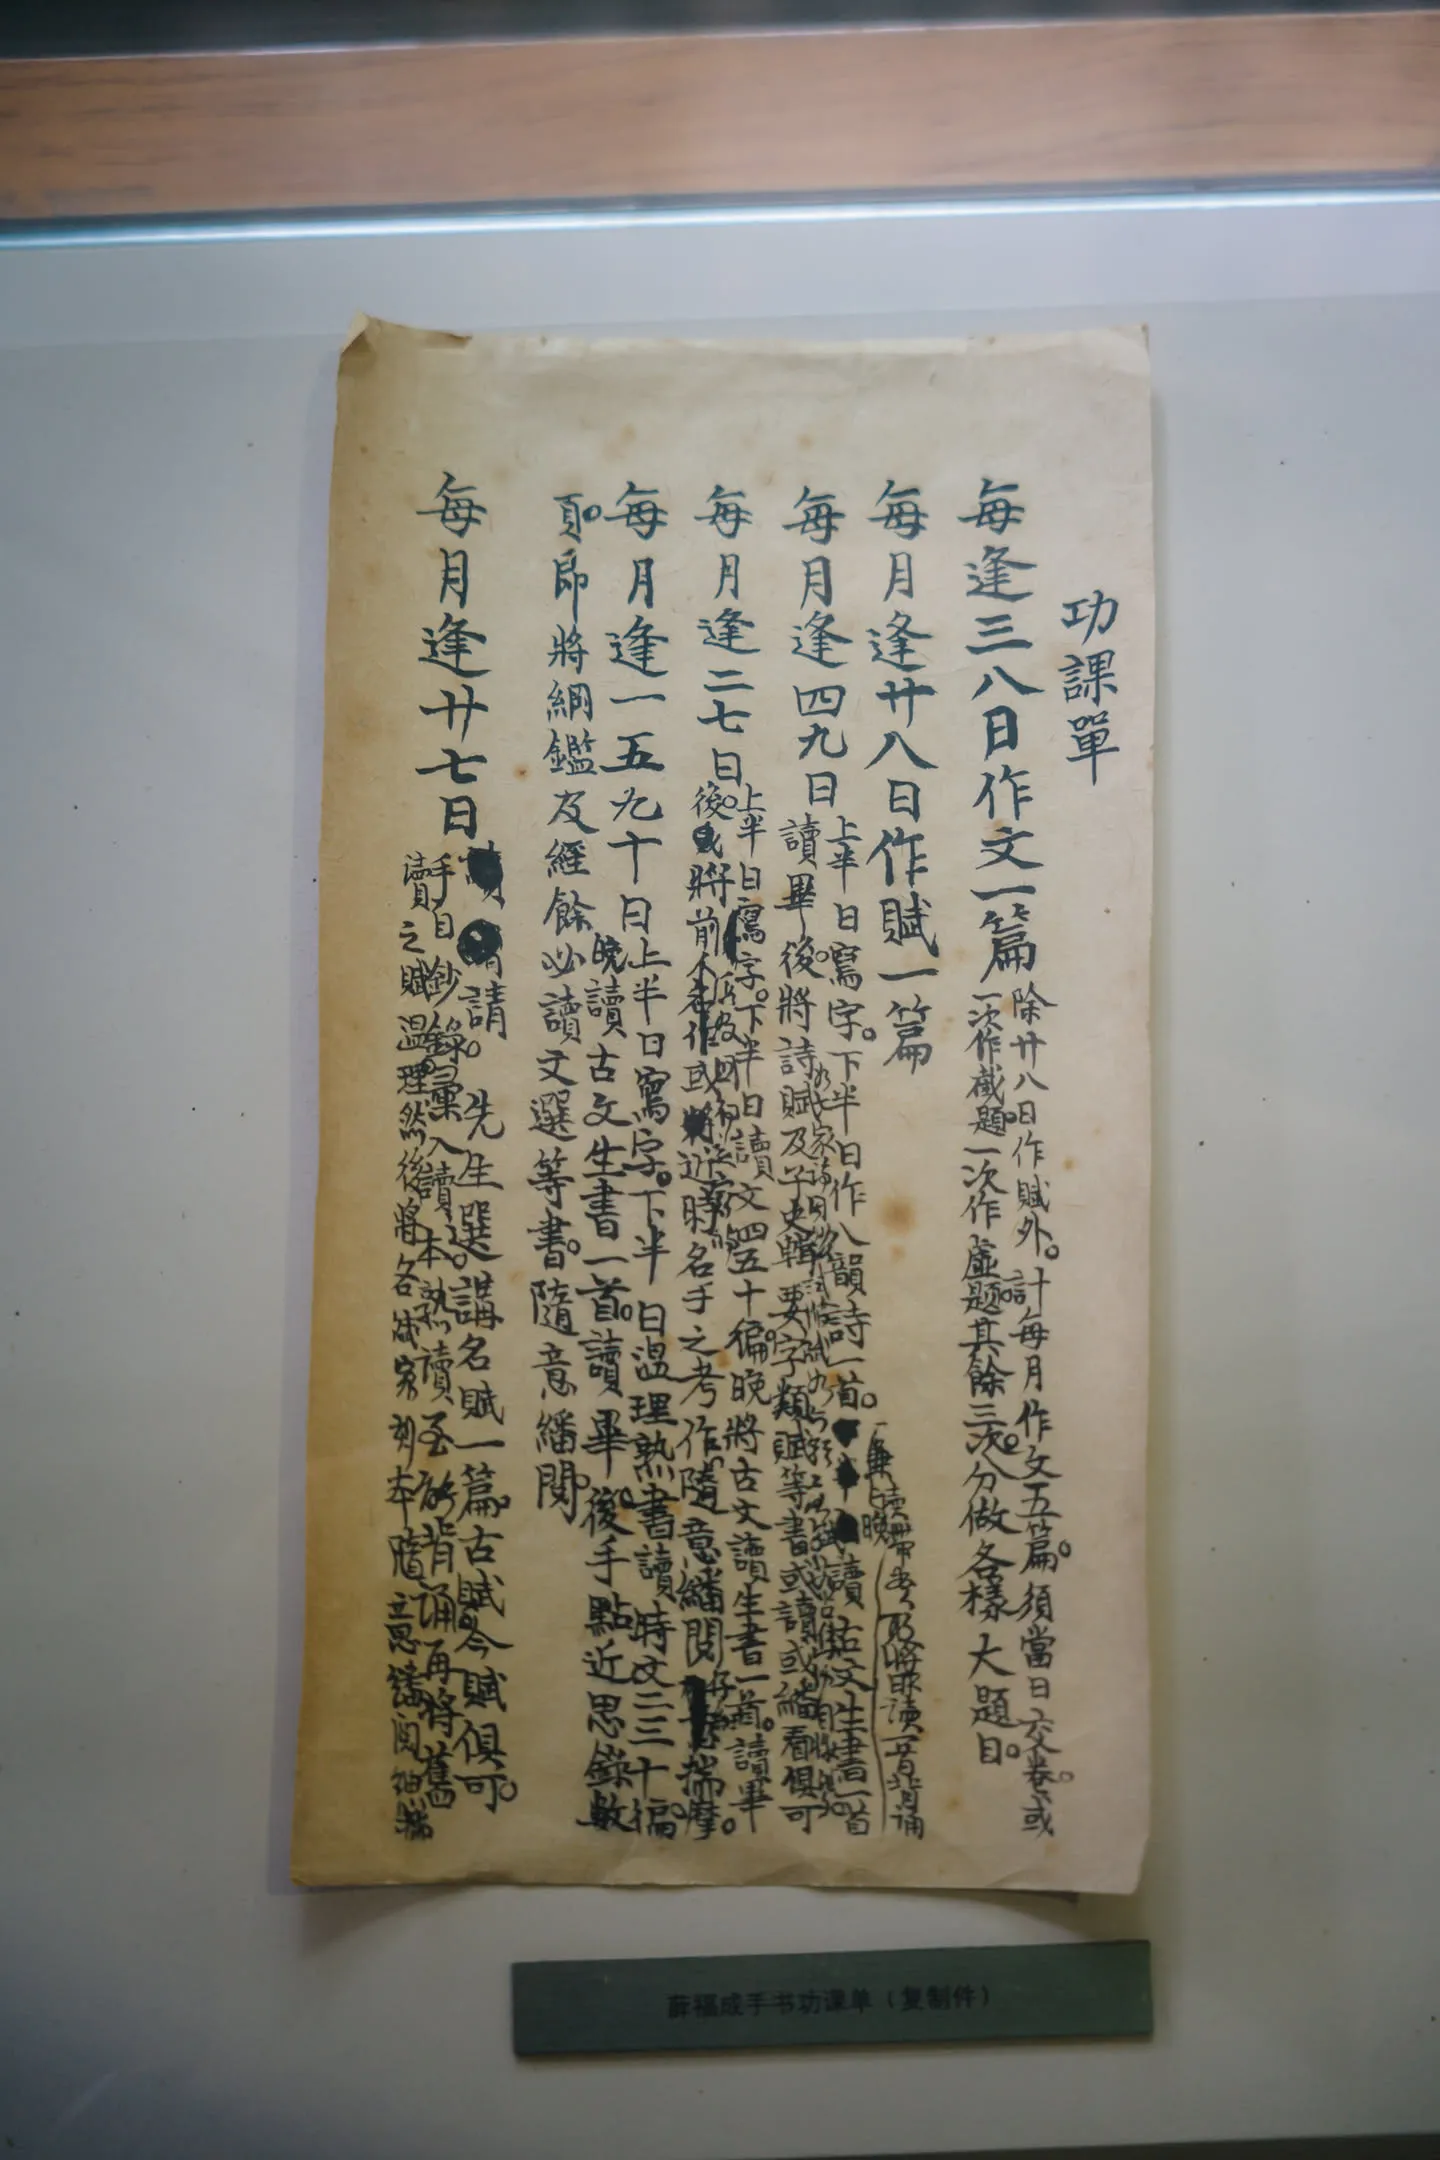 功課單
每逢三八日作文一篇
除廿八日作賦外。計每月作文五篇。須當日交卷。或
一次作截題。一次作虛題。其餘三次。分做各樣大題目。
每月逢廿八日作賦一篇
每月逢四九日
上半日寫字。下半日作八韻詩一首。讀古文生書一首
讀畢後。將詩賦及子史輯要字類賦等書或讀或繙看俱可
每月逢二七日
上半日寫字。下半日讀文四五十徧。晚將古文讀生書一首。讀畢
後。將前人考作或將近時名手之考作隨意繙閱揣摩。
每月逢一五九十日
上半日寫字。下半日溫理熟書讀時文二三十徧。
晚讀古文生書一首。讀畢後。手點近思錄數
頁。即將綱鑑及經餘必讀文選等書。隨意繙閱
每月逢廿七日
請先生選講名賦一篇。古賦今賦俱可。
手自鈔錄。彙入讀本。熟讀至能背誦再將舊
讀之賦溫理然後將各賦家刻本隨意繙閱細揣
薛福成手书功课单（复制件）